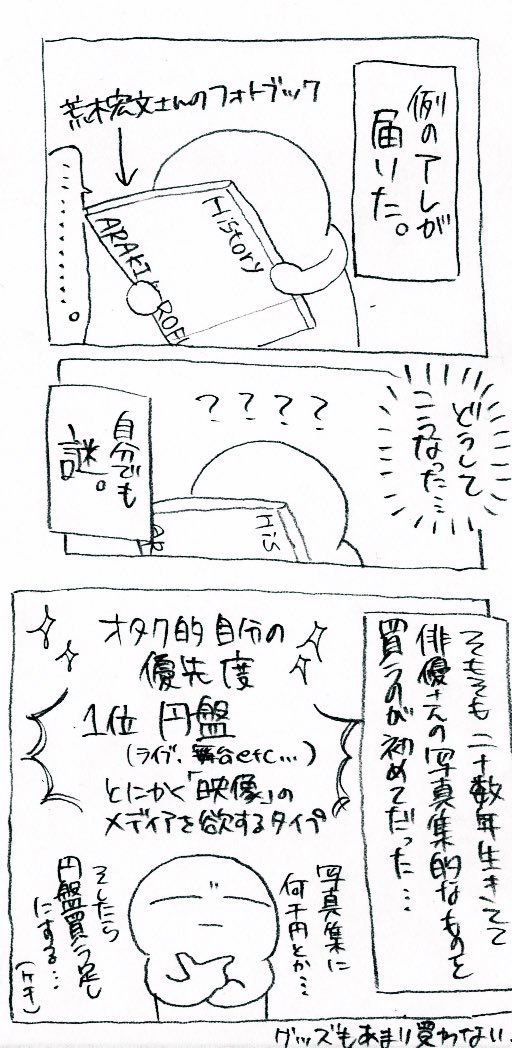 例のアレが
届いた。
荒木宏文さんのフォトブック
History
ARAKI
ROF
・・・・・・・・。
どうして
こうなった…
????
自分でも
謎。
His
AR
そもそも二十数年生きてて
俳優さんの写真集的なものを
買うのが初めてだった…
オタク的自分の
優先度
1位 円盤
(ライブ、舞台etc...)
とにかく「映像」の
メディアを欲するタイプ
写真集に
何千円とか…
そしたら
円盤買う足し
にする…
(ケチ)
グッズもあまり買わない。